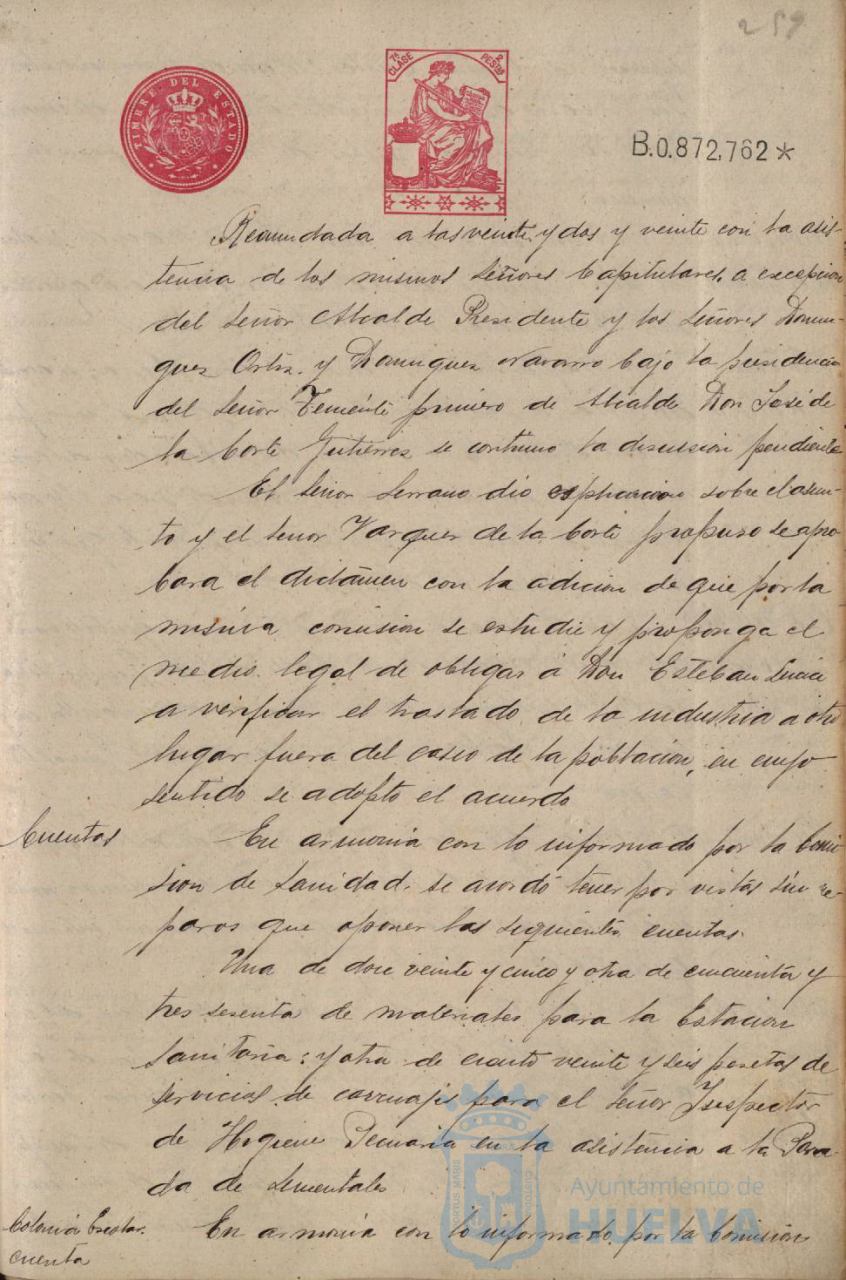 259
TIMBRE DEL ESTADO
7ª CLASE 2 PESTAS
B.0.872,762*
Reanundada a las veinte y dos y veinte con la asis-
tencia de los mismos Señores Capitulares, a excepcion
del Señor Alcalde Presidente y los Señores Domin-
guez Ortiz y Dominguez Navarro bajo la presidencia
del Señor Teniente primero de Alcalde Don José de
la Corte Gutierrez se continuo la discusion pendiente
El Señor Serrano dio esplicacion sobre el asun-
to y el Señor Vazquez de la Corte propuso se apro-
bara el dictámen con la adicion de que por la
misma comision se estudie y proponga el
medio legal de obligar á Don Esteban
a verificar el traslado de la industria a otro
lugar fuera del casco de la poblacion, en cuyo
sentido se adopto el acuerdo
Cuentas
En armonia con lo informado por la Comi-
sion de Sanidad, se acordó tener por vistas sin re-
paros que oponer las siguientes cuentas.
Una de doce veinte y cinco y otra de cincuenta y
tres sesenta de materiales para la Estacion
Sanitaria: y otra de ciento veinte y seis pesetas de
servicios de carruajes para el Señor Inspector
de Higiene Pecuaria en la asistencia a la Para-
da de Sementales
Colonia Escolar.
cuenta
En armonia con lo informado por la Comision
Ayuntamiento de
HUELVA